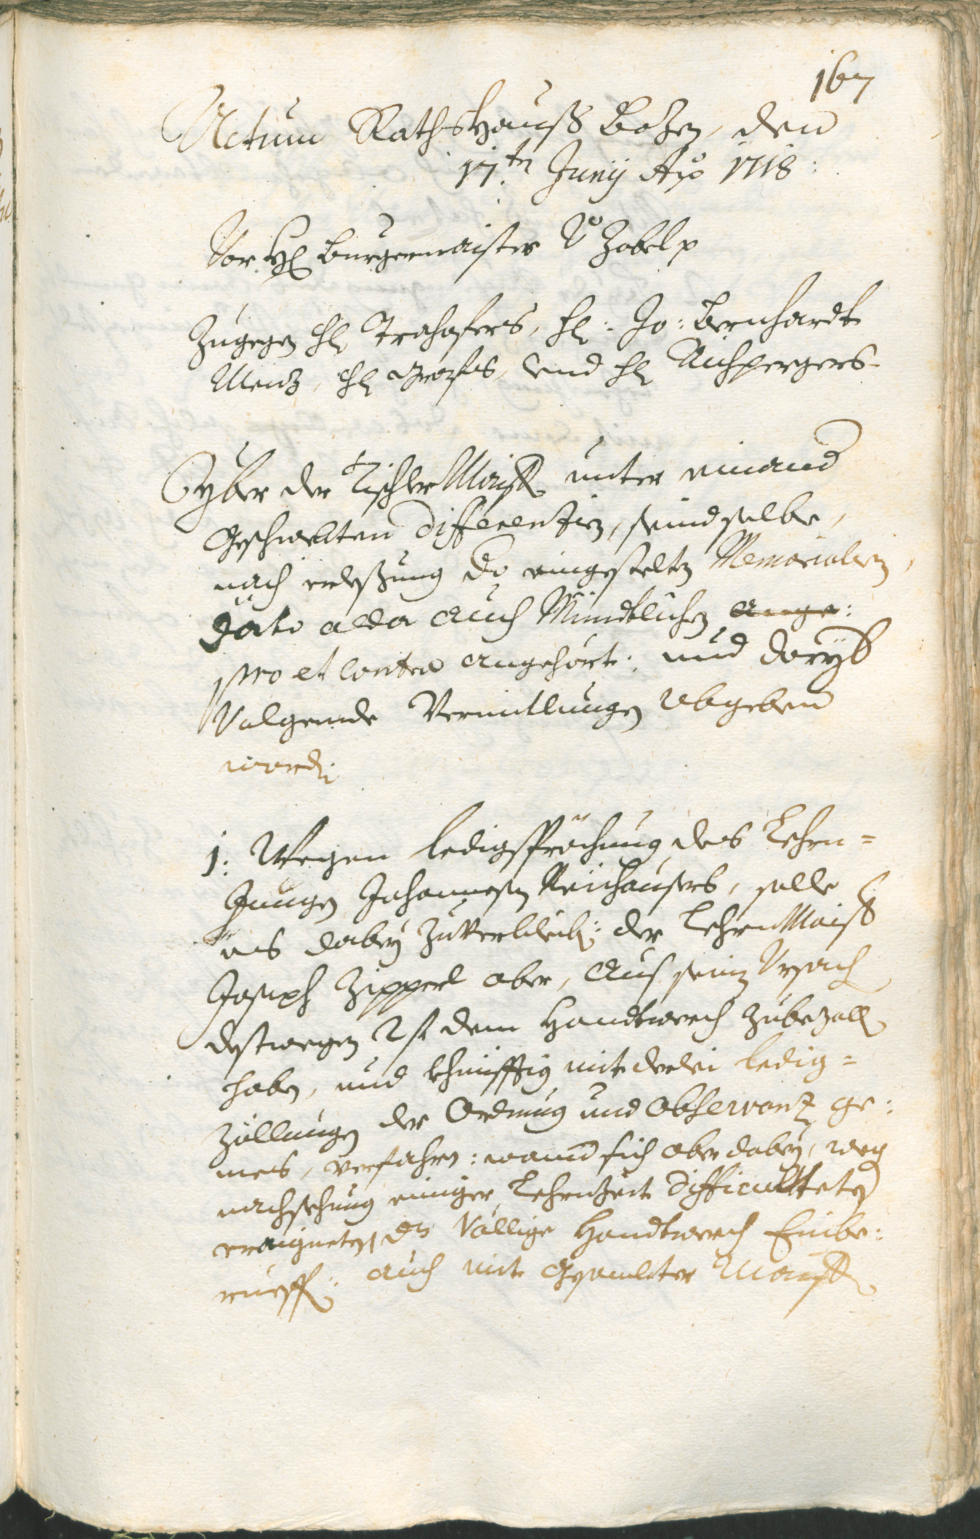 167
Actum Rathshauß Bozen, den
17.ten Junij Aõ 1718:
Vor Hl Burgermaister Vo Zobel p
Zugegen hl Trahofers, hl: Jo: Bernhardt
Menz, hl Grafes, und hl Aichpergers
Yber der Tischler Maister unter einand
geschwebten differentien, seind selbe,
nach verlesung do eingestelten Memorialien,
Dato alda auch Mündtlichen ange:
pro et contra angehört: und daryb
Volgende Vermitlungen abgeben
worden
1: Wegen ledigsprächung des Lehrn=
Jungen Johannesen Reichausers, solle
es dabey zuverbleiben: der Lehrn Maister
Joseph Zipperl aber, aus seiner Ursach
destwegen 2 f dem Handtwerch zubezallen
haben, und khünfftig mit derlei ledig=
zöllungen der Ordnung und Observanz ge:
mes, verfahren: wannd sich aber dabey, wegen
nachsehung einiger Lehrnzeit difficulteten
eraigneten, das Völlige Handtwerch Einbe:
rueffen: auch mit gesambter Maister